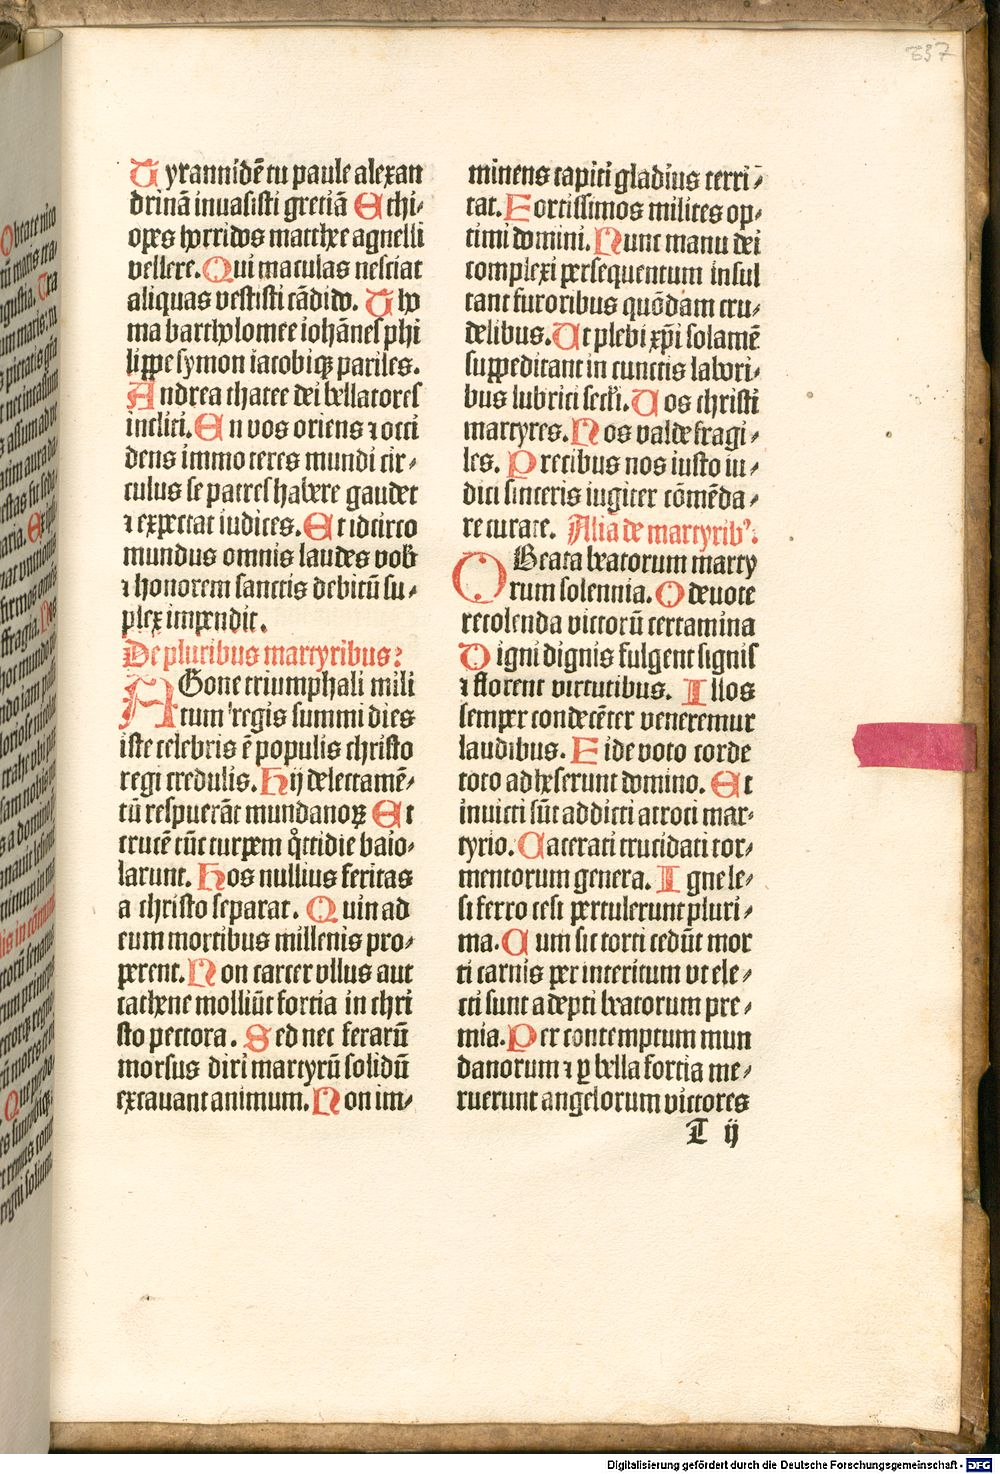 637
Tyrannidē tu paule alexan
drinā inuasisti greciā Ethi⸗
opes horridos mathee agnelli
vellere. Qui maculas nesciat
aliquas vestisti cādido. Tho
ma bartholomee iohānes phi
lippe symon iacobiqꝫ pariles.
Andrea thatee dei bellatores
incliti. En vos oriens ⁊ occi
dens immo teres mundi cir⸗
culus se patres habere gaudet
⁊ expectat iudices. Et idcirco
mundus omnis laudes vob
⁊ honorem sanctis debitū su⸗
plex impendit.
De pluribus martyribus:
AGone triumphali mili
tum regis summi dies
iste celebris ē populis christo
regi credulis. Hij delectamē⸗
tū respuerāt mundanoꝝ Et
crucē tūc turpem qͦttidie baio⸗
larunt. Hos nullius feritas
a christo separat. Quin ad
eum mortibus millenis pro⸗
perent. Non carcer vllus aut
cathene molliūt fortia in chri
sto pectora. Sed nec ferarū
morsus diri martyrū solidū
excauant animum. Non im⸗
minens capiti gladius terri⸗
tat. Fortissimos milites op⸗
timi domini. Nunc manu dei
complexi persequentum insul
tant furoribus quōdam cru⸗
delibus. Ut plebi xp̄i solamē
suppeditant in cunctis labori⸗
bus lubrici secl̄i. Uos christi
martyres. Nos valde fragi⸗
les. Precibus nos iusto iu⸗
dici sinceris iugiter cōmēda⸗
re curate. Alia de martyribꝰ:
OBeata beatorum marty
rum solennia. O deuote
recolenda victorū certamina
Digni dignis fulgent signis
⁊ florent virtutibus. Illos
semper condecēter veneremur
laudibus. Fide voto corde
toto adheserunt domino. Et
inuicti sūt addicti atroci mar⸗
tyrio. Cacerati trucidati tor⸗
mentorum genera. Igne le⸗
si ferro cesi pertulerunt pluri⸗
ma. Cum sic torti cedūt mor
ti carnis per interitum vt ele⸗
cti sunt adepti beatorum pre⸗
mia. Per contemptum mun
danorum ⁊ ꝑ bella fortia me⸗
ruerunt angelorum victores
T ij
Digitalisierung gefördert durch die Deutsche Forschungsgemeinschaft - DFG